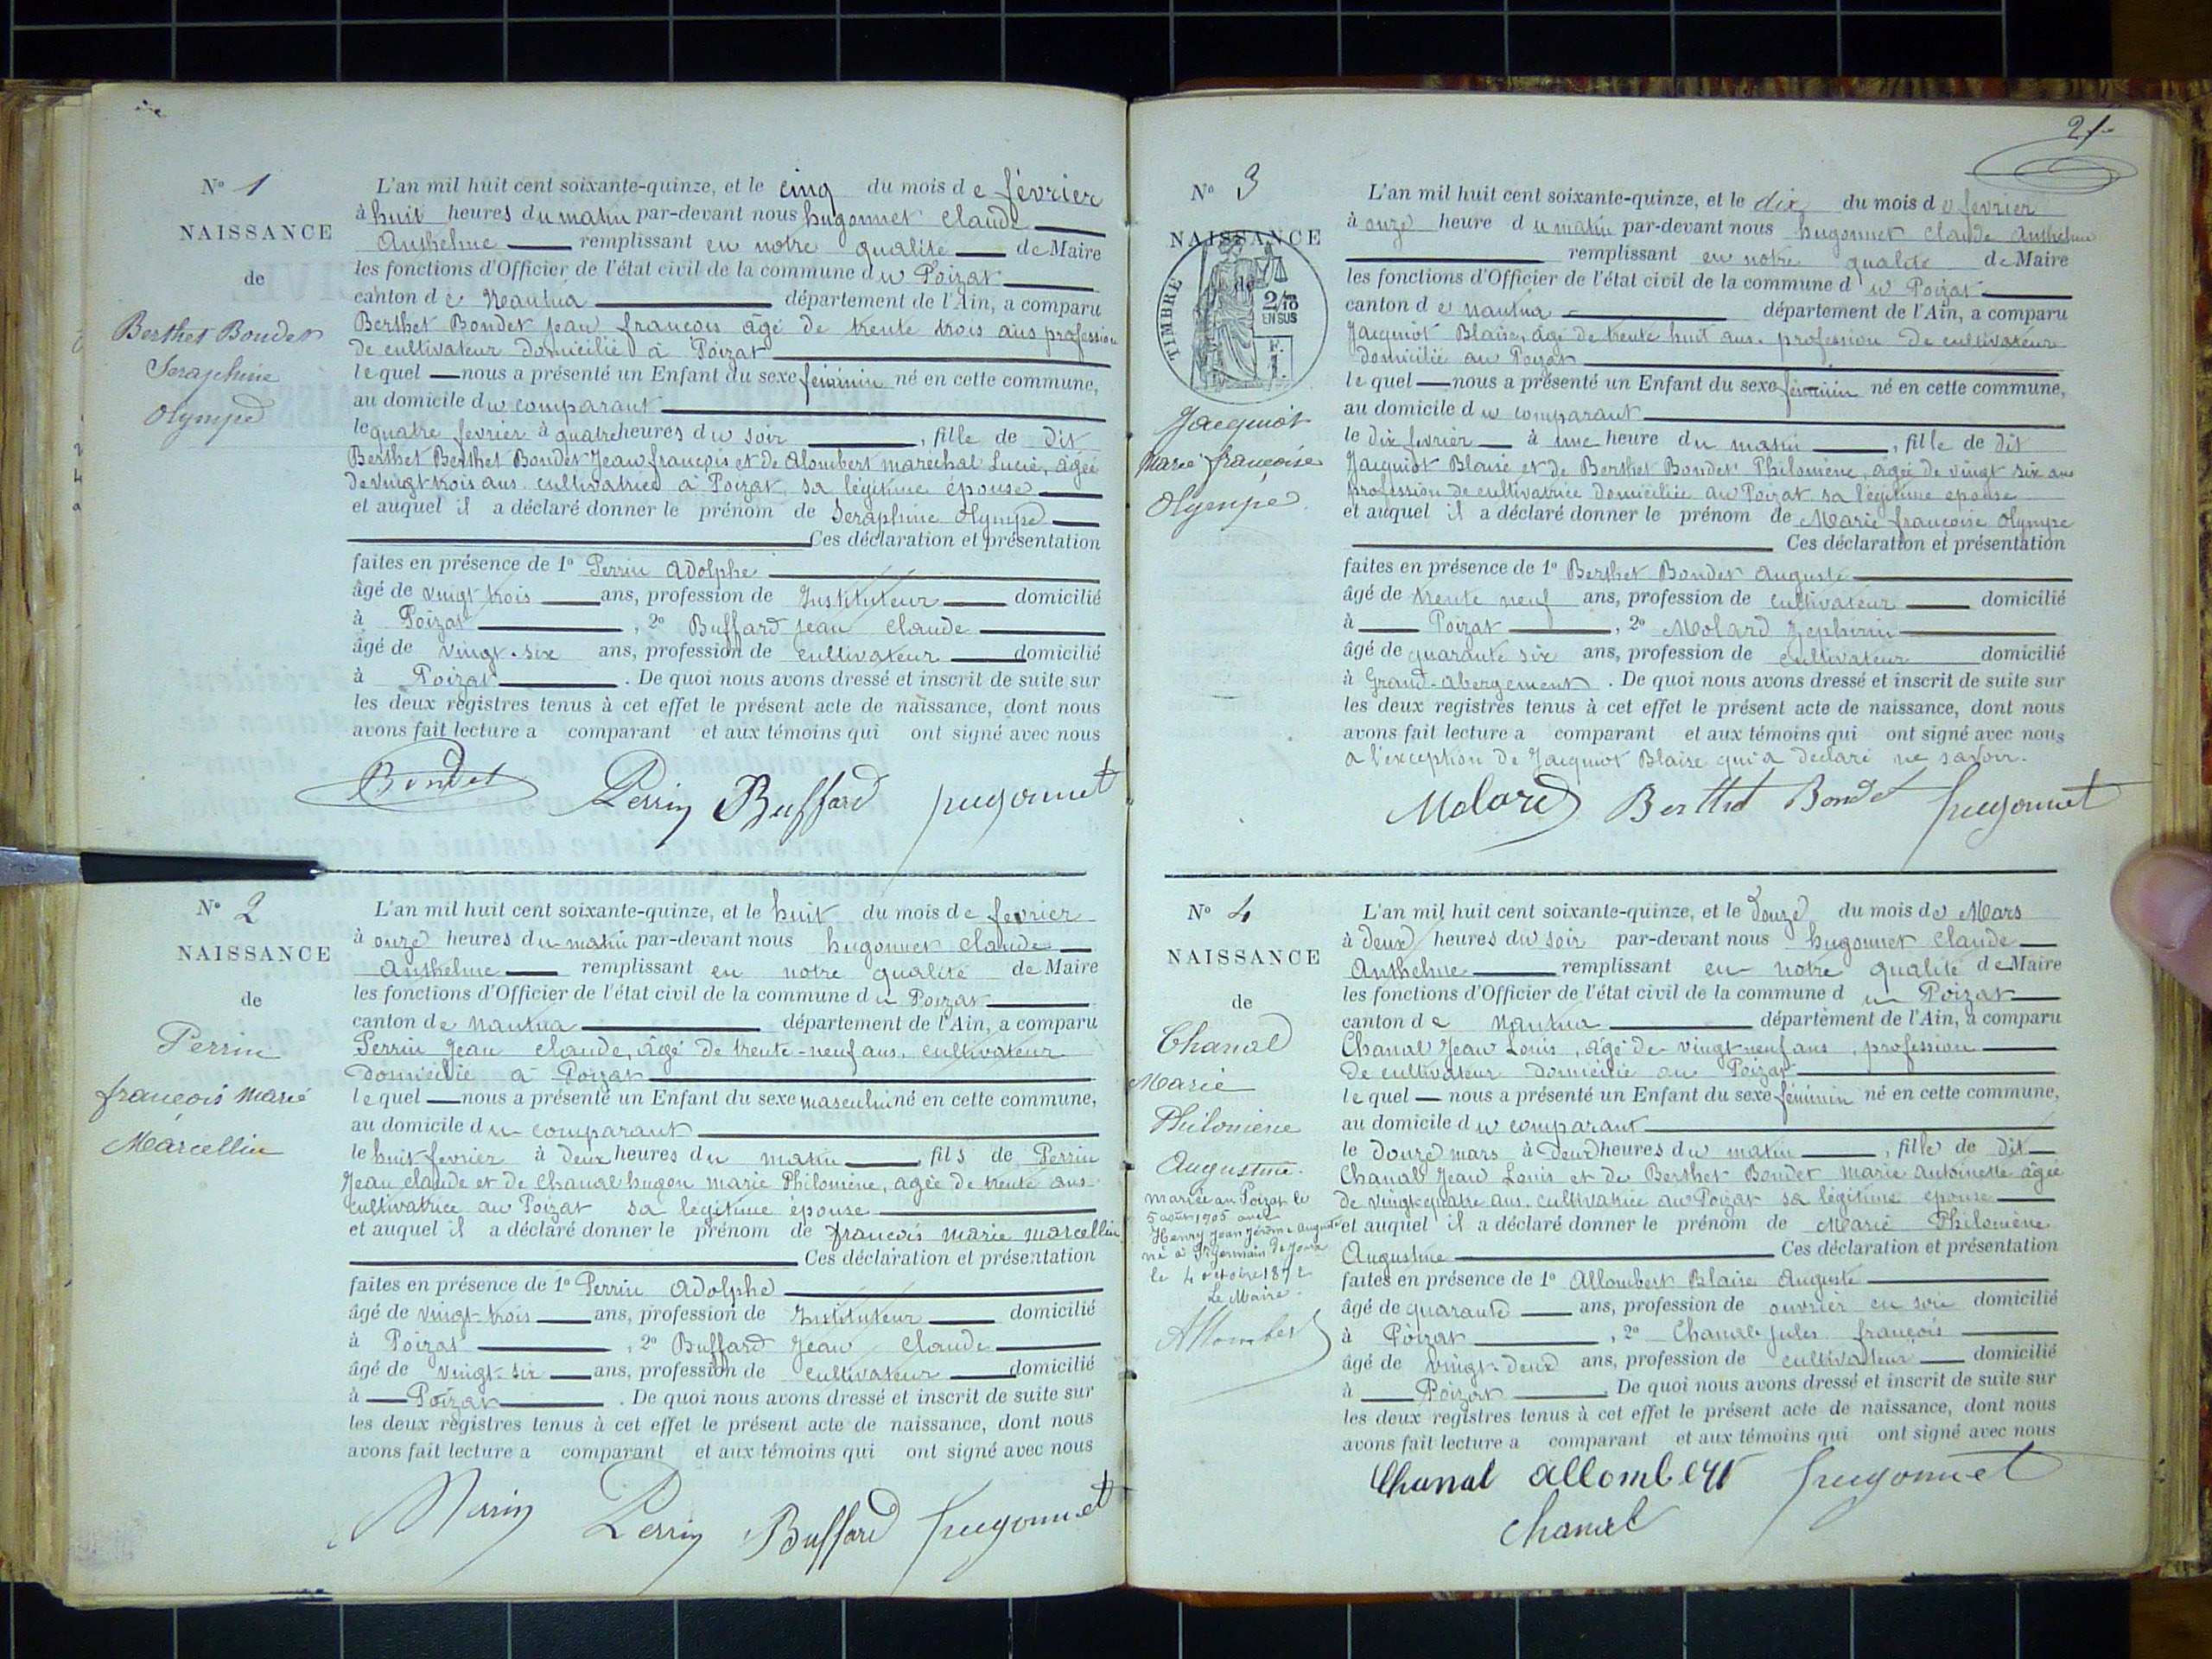 N° 1
NAISSANCE
de
Berthet Bondet
Seraphine
Olympe
L'an mil huit cent soixante-quinze, et le cinq du mois de février
à huit heures du matin par-devant nous hugonnet Claude
Anthelme remplissant en notre qualité de Maire
les fonctions d'Officier de l'état civil de la commune du Poizat
canton de Nantua département de l'Ain, a comparu
Berthet Bondet Jean françois âgé de trente trois ans profession
de cultivateur domicilié à Poizat
lequel nous a présenté un Enfant du sexe féminin né en cette commune,
au domicile du comparant
le quatre fevrier à quatre heures du soir, fille de dit
Berthet Berthet Bondet Jean françois et de Alombert maréchal Lucie, âgée
de vingt trois ans cultivatrice à Poizat, sa légitime épouse
et auquel il a déclaré donner le prénom de Seraphine Olympe
Ces déclaration et présentation
faites en présence de 1° Perrin Adolphe
âgé de vingt trois ans, profession de Instituteur domicilié
à Poizat, 2° Buffard Jean Claude
âgé de vingt-six ans, profession de cultivateur domicilié
à Poizat. De quoi nous avons dressé et inscrit de suite sur
les deux registres tenus à cet effet le présent acte de naissance, dont nous
avons fait lecture a comparant et aux témoins qui ont signé avec nous
Bondet Perrin Buffard hugonnet
N° 2
NAISSANCE
de
Perrin
françois Marie
Marcellin
L'an mil huit cent soixante-quinze, et le huit du mois de fevrier
à onze heures du matin par-devant nous hugonnet Claude
Anthelme remplissant en notre qualité de Maire
les fonctions d'Officier de l'état civil de la commune du Poizat
canton de Nantua département de l'Ain, a comparu
Perrin Jean claude, âgé de trente-neuf ans, cultivateur
domicilié à Poizat
lequel nous a présenté un Enfant du sexe masculin né en cette commune,
au domicile du comparant
le huit fevrier à deux heures du matin, fils de Perrin
Jean claude et de Chanal hugon marie Philomène, agée de trente ans
cultivatrice au Poizat sa légitime épouse
et auquel il a déclaré donner le prénom de françois marie marcellin
Ces déclaration et présentation
faites en présence de 1° Perrin Adolphe
âgé de vingt-trois ans, profession de Instituteur domicilié
à Poizat, 2° Buffard Jean Claude
âgé de vingt-six ans, profession de cultivateur domicilié
à Poizat. De quoi nous avons dressé et inscrit de suite sur
les deux registres tenus à cet effet le présent acte de naissance, dont nous
avons fait lecture a comparant et aux témoins qui ont signé avec nous
Perrin Perrin Buffard hugonnet
21
N° 3
NAISSANCE
de
TIMBRE
2/10
EN SUS
F.
1.
Jacquiot
Marie françoise
Olympe
L'an mil huit cent soixante-quinze, et le dix du mois de fevrier
à onze heure du matin par-devant nous hugonnet Claude Anthelme
remplissant en notre qualité de Maire
les fonctions d'Officier de l'état civil de la commune du Poizat
canton de nantua département de l'Ain, a comparu
Jacquiot Blaise, âgé de trente huit ans, profession de cultivateur
domicilié au Poizat
lequel nous a présenté un Enfant du sexe féminin né en cette commune,
au domicile du comparant
le dix fevrier à une heure du matin, fille de dit
Jacquiot Blaise et de Berthet Bondet Philomène, âgée de vingt six ans
profession de cultivatrice domiciliée au Poizat sa légitime epouse
et auquel il a déclaré donner le prénom de Marie françoise Olympe
Ces déclaration et présentation
faites en présence de 1° Berthet Bondet auguste
âgé de trente neuf ans, profession de cultivateur domicilié
à Poizat, 2° Molard Zephirin
âgé de quarante six ans, profession de cultivateur domicilié
à Grand-Abergement. De quoi nous avons dressé et inscrit de suite sur
les deux registres tenus à cet effet le présent acte de naissance, dont nous
avons fait lecture a comparant et aux témoins qui ont signé avec nous
a l'exception de Jacquiot Blaise qui a déclaré ne savoir.
Molard Berthet Bondet hugonnet
N° 4
NAISSANCE
de
Chanal
Marie
Philomène
Augustine.
mariée au Poizat le
5 août 1905 avec
Henry Jean Jérôme Auguste
né à St germain de Joux
le 4 octobre 1872
Le Maire.
Allombert
L'an mil huit cent soixante-quinze, et le douze du mois de Mars
à deux heures du soir par-devant nous hugonnet Claude
Anthelme remplissant en notre qualité de Maire
les fonctions d'Officier de l'état civil de la commune du Poizat
canton de Nantua département de l'Ain, a comparu
Chanal Jean Louis, âgé de vingt-neuf ans, profession
de cultivateur domicilié au Poizat
lequel nous a présenté un Enfant du sexe féminin né en cette commune,
au domicile du comparant
le douze mars à deux heures du matin, fille de dit
Chanal Jean Louis et de Berthet Bondet marie Antoinette âgée
de vingt-quatre ans. cultivatrice au Poizat sa légitime épouse
et auquel il a déclaré donner le prénom de Marie Philomène
Augustine Ces déclaration et présentation
faites en présence de 1° Allombert Blaise Auguste
âgé de quarante ans, profession de ouvrier en soie domicilié
à Poizat, 2° Chanal Jules françois
âgé de vingt-deux ans, profession de cultivateur domicilié
à Poizat. De quoi nous avons dressé et inscrit de suite sur
les deux registres tenus à cet effet le présent acte de naissance, dont nous
avons fait lecture a comparant et aux témoins qui ont signé avec nous
Chanal allombert hugonnet
Chanal